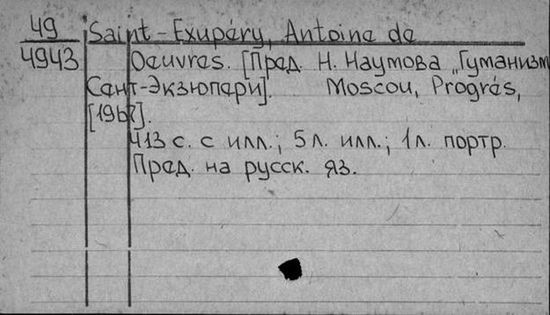 49
4943
Saint-Exupéry, Antoine de
Oeuvres. [Пред. Н. Наумова „Гуманизм
Сант-Экзюпери]. Moscou, Progrés,
[1967].
413 с. с илл.; 5 л. илл.; 1 л. портр.
Пред. на русск. яз.